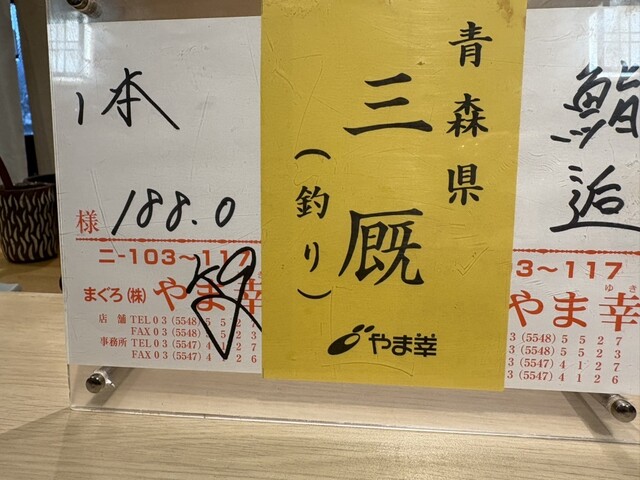 1本
様 188.0
kg
二-103～117
まぐろ(株) やま幸
店舗 TEL 03 (5548) 5 5 2
FAX 03 (5548) 5 5 2 3
事務所 TEL 03 (5547) 4 1 2 7
FAX 03 (5547) 4 1 2 6
青森県
三厩
(釣り)
やま幸
鮨
逅
3～117
ゆき
やま幸
3 (5548) 5 5 2 7
3 (5548) 5 5 2 3
3 (5547) 4 1 2 7
3 (5547) 4 1 2 6